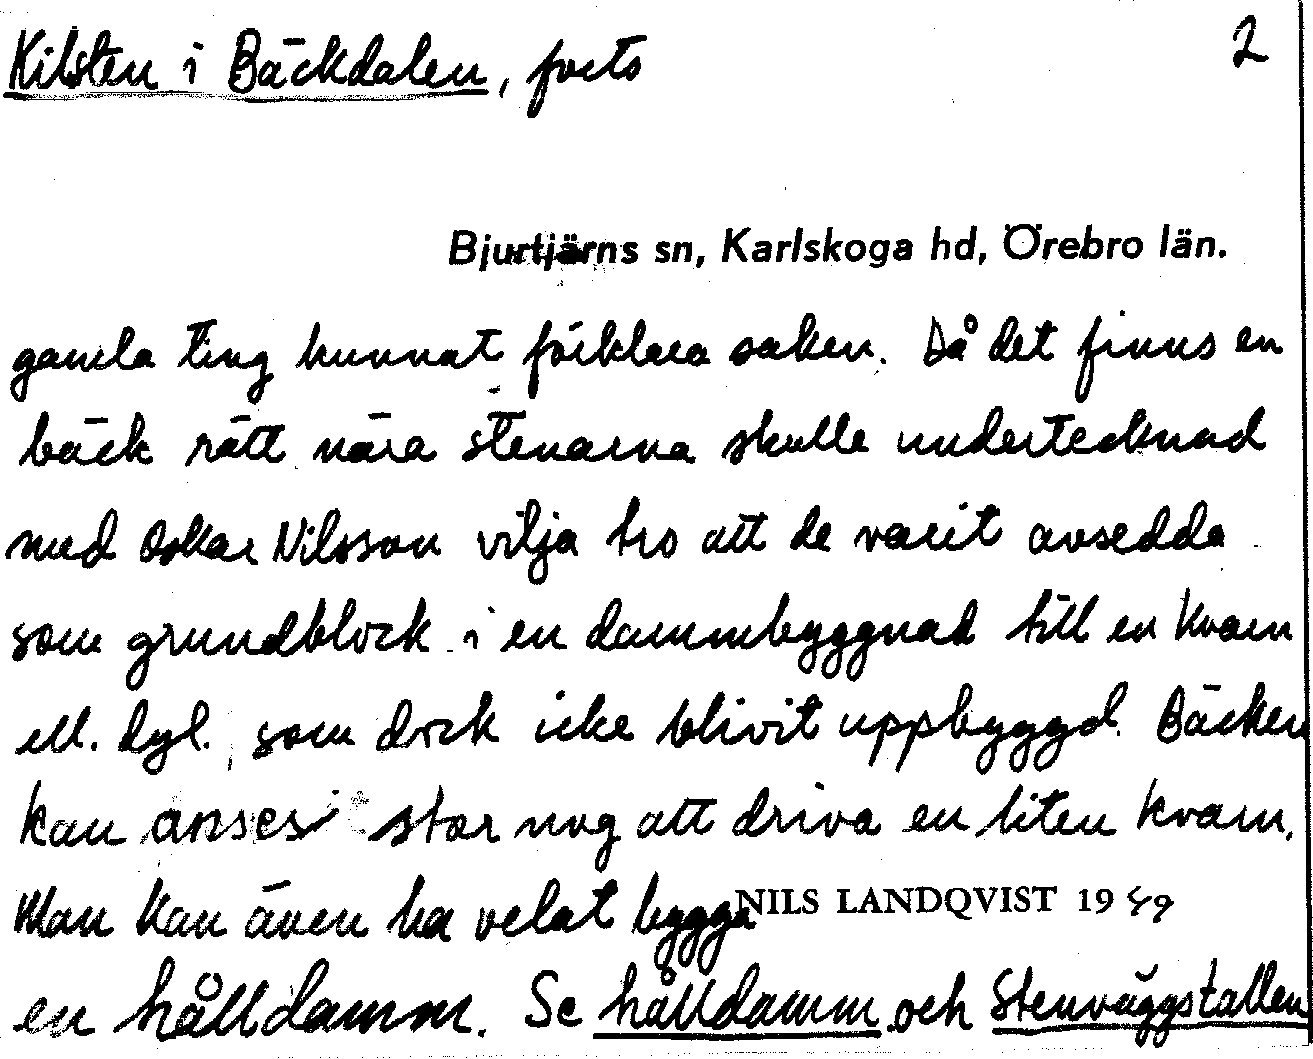 Kilsten i Bäckdalen, forts 2
Bjurtjärns sn, Karlskoga hd, Örebro län.
gamla ting kunnat förklara saken. Då det finns en
bäck rätt nära stenarna skulle undertecknad
med Oskar Nilsson vilja tro att de varit avsedda
som grundblock i en dammbyggnad till en kvarn
ell. dyl., som dock icke blivit uppbyggd. Bäcken
kan anses stor nog att driva en liten kvarn.
Man kan även ha velat bygga NILS LANDQVIST 1949
en hålldamm. Se hålldamm och Stenväggstallen